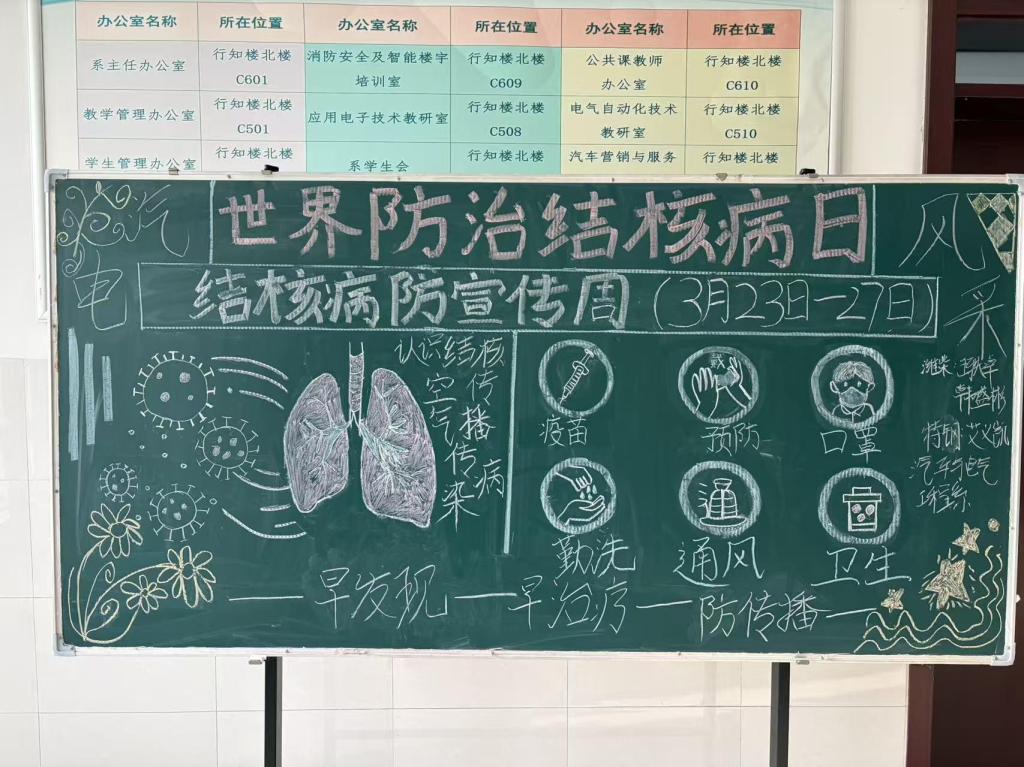 办公室名称 所在位置 办公室名称 所在位置 办公室名称 所在位置
系主任办公室 行知楼北楼 C601 消防安全及智能楼宇培训室 行知楼北楼 C609 公共课教师办公室 行知楼北楼 C610
教学管理办公室 行知楼北楼 C501 应用电子技术教研室 行知楼北楼 C508 电气自动化技术教研室 行知楼北楼 C510
学生管理办公室 行知楼北楼 系学生会 行知楼北楼 汽车营销与服务 行知楼北楼
汽电
世界防治结核病日
风采
结核病防宣传周(3月23日—27日)
认识结核
空气传染
传播病
疫苗
预防
口罩
勤洗
通
通风
卫生
潍柴
特钢
汽车与电气
工程系
—早发现—早治疗—防传播—